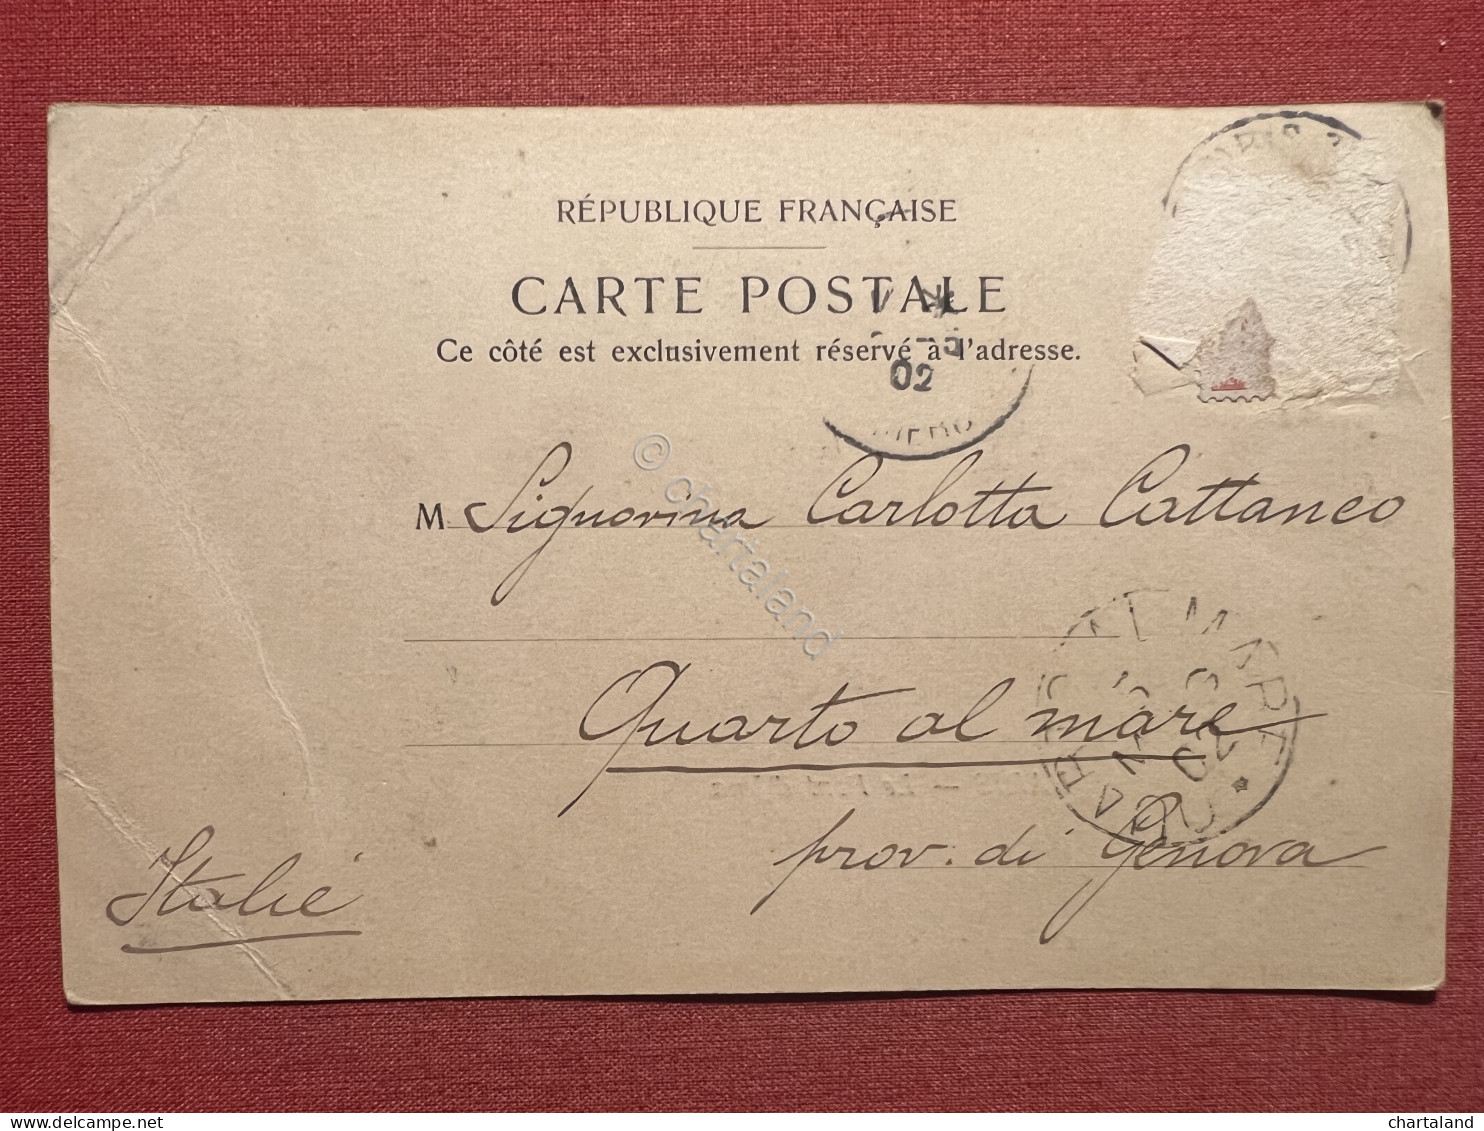 RÉPUBLIQUE FRANÇAISE
CARTE POSTALE
Ce côté est exclusivement réservé à l'adresse.
02
M Signorina Carlotta Cattaneo
Quarto al mare
prov. di Genova
Italie
MARE
02
© chartaland
www.delcampe.net
chartaland